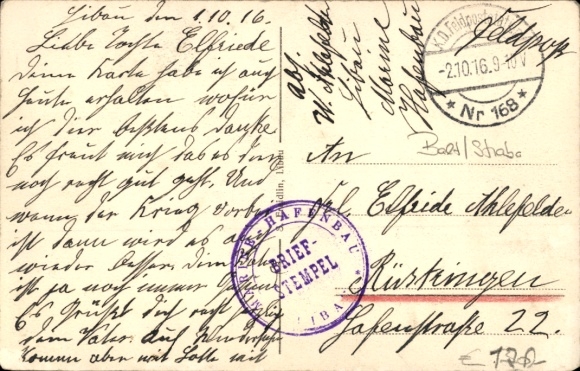 Libau den 1.10.16.
Liebe Tochter Elfriede
Deine Karte habe ich auch
heute erhalten wofür
ich Dir bestens danke
Es freut mich das es dir
noch recht gut geht. Und
wenn der Krieg vorbei
ist dann wird es
wieder besser. Dein
ist ja noch immer
Es Grüßt dich recht
dem Vater auf
komm aber mit
Abs.
W. Ahlefelde
Libau
Marine
Hafenbau
Feldpost
K.D. Feldpost
-2.10.16. 9-10 V
* Nr 168 *
Balt/Straba
An
Frl. Elfriede Ahlefelde
Rüstringen
Hafenstraße 22.
MARINE-HAFENBAU
BRIEF-
STEMPEL
LIBAU